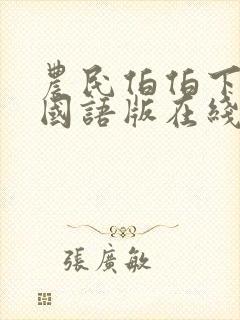 農民伯伯下
國語版在綫
張廣敏